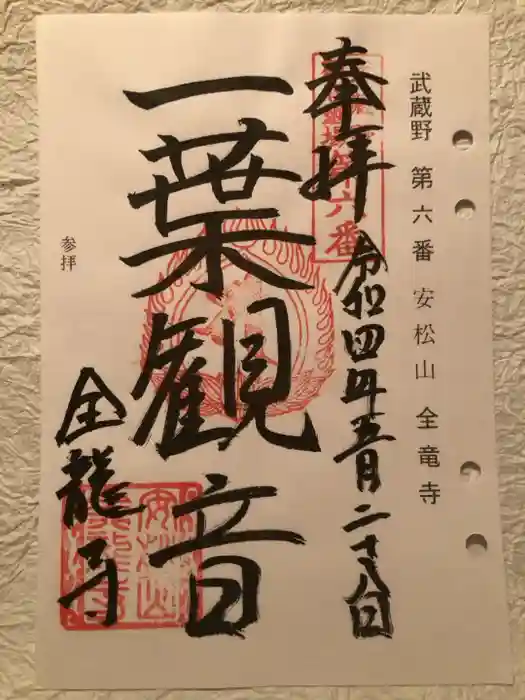 武蔵野 第六番 安松山 全竜寺
奉拝
令和四年五月二十八日
第六番
一葉観音
全龍寺
参拝